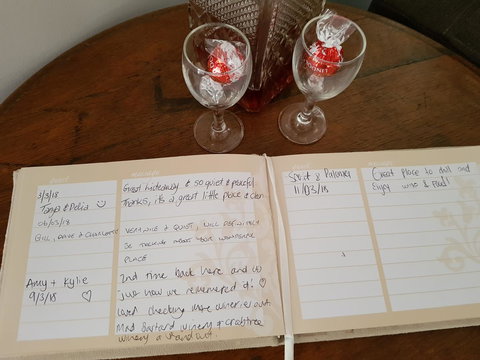 guest
message
3/3/18
Tanja & Petia
Great hideaway & so quiet & peaceful.
Thanks, its a great little place & clean.
06/03/18
GILL, DAVE & CHARLOTTE
VERY NICE & QUIET, WILL DEFINITELY
BE TELLING ABOUT THIS WONDERFUL
PLACE
Amy + Kylie
9/3/18
2nd time back here and is
just how we remembered it!
Loved checking more wineries out.
winery & Crabtree
winery a stand out.
guest
message
11/03/18
Great place to chill and
enjoy wine & food!